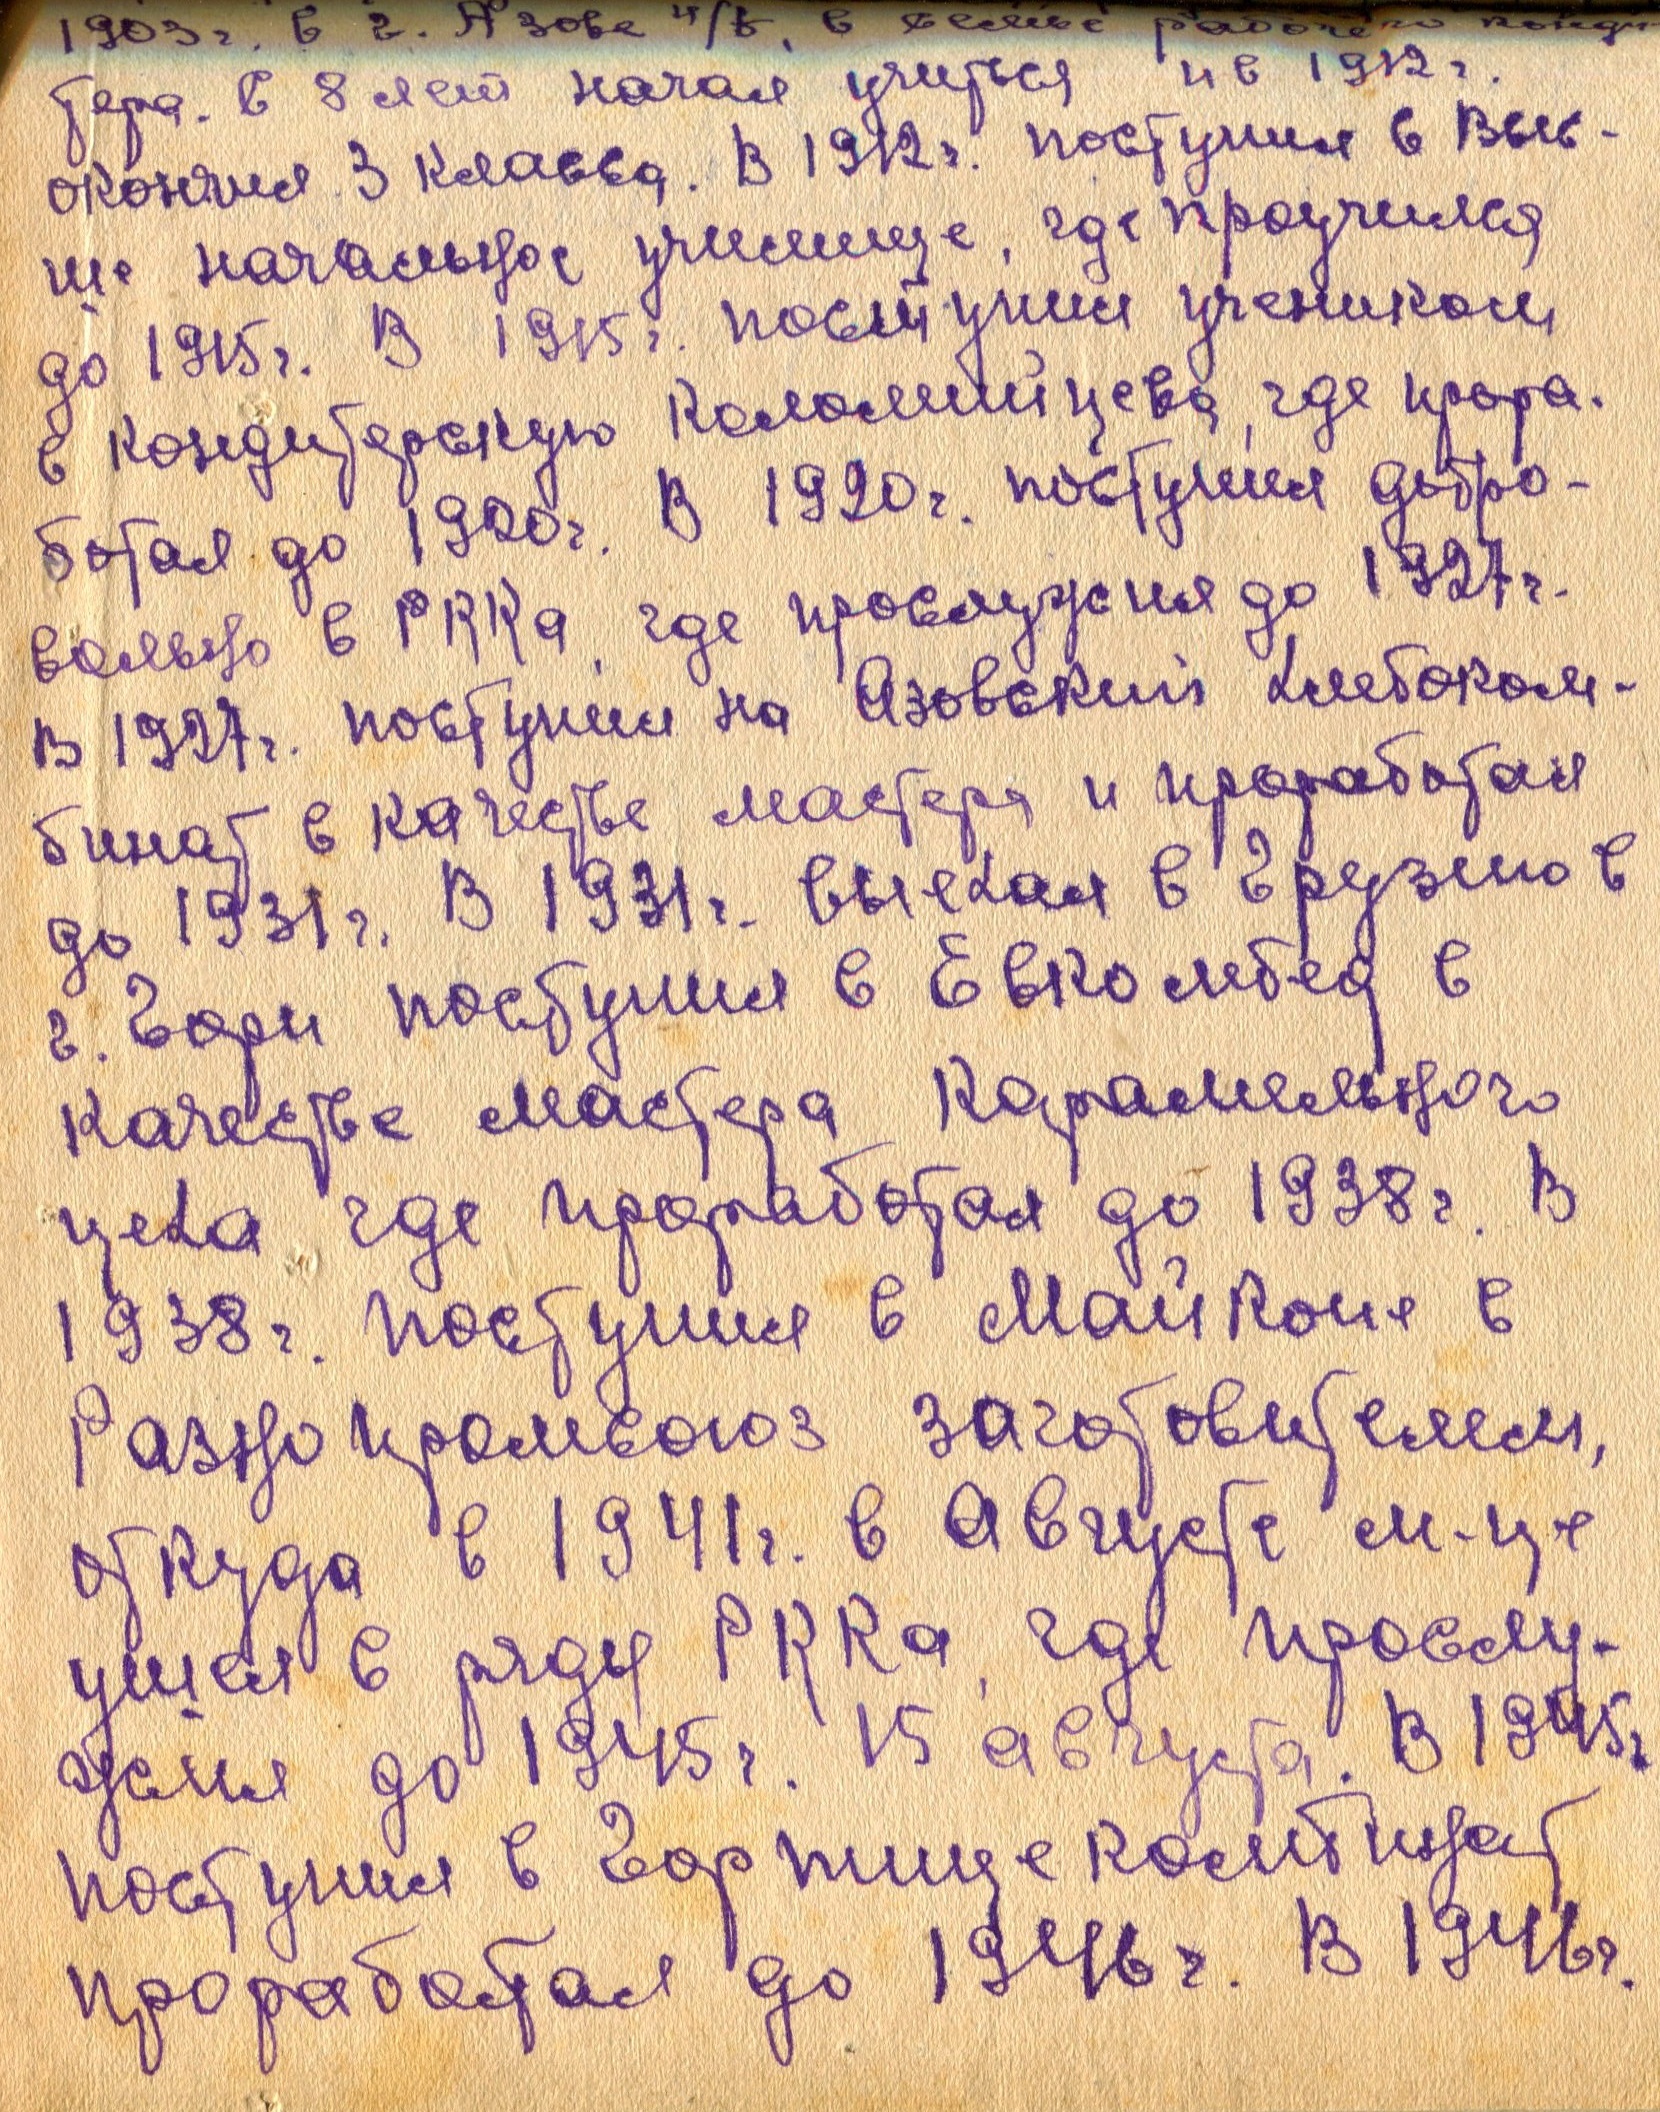 1903 г. в г. Азове н/Д, в семье рабочего конди-
тера. В 8 лет начал учиться и в 1912 г.
окончил 3 класса. В 1912 г. поступил в Выс-
ше начальное училище, где проучился
до 1915 г. В 1915 г. поступил учеником
в кондитерскую Коломийцева, где прора-
ботал до 1920 г. В 1920 г. поступил добро-
вольно в РККа, где прослужил до 1927 г.
В 1927 г. поступил на Азовский хлебоком-
бинат в качестве мастера и проработал
до 1931 г. В 1931 г. выехал в Грузию в
г. Гори поступил в Евкомбед в
качестве мастера карамельного
цеха где проработал до 1938 г. В
1938 г. поступил в Майкопе в
Разнопромсоюз заготовителем,
откуда в 1941 г. в Августе м-це
ушел в ряды РККа, где прослу-
жил до 1945 г. 15 августа. В 1945 г.
поступил в Горпищекомбинат
проработал до 1946 г. В 1946 г.